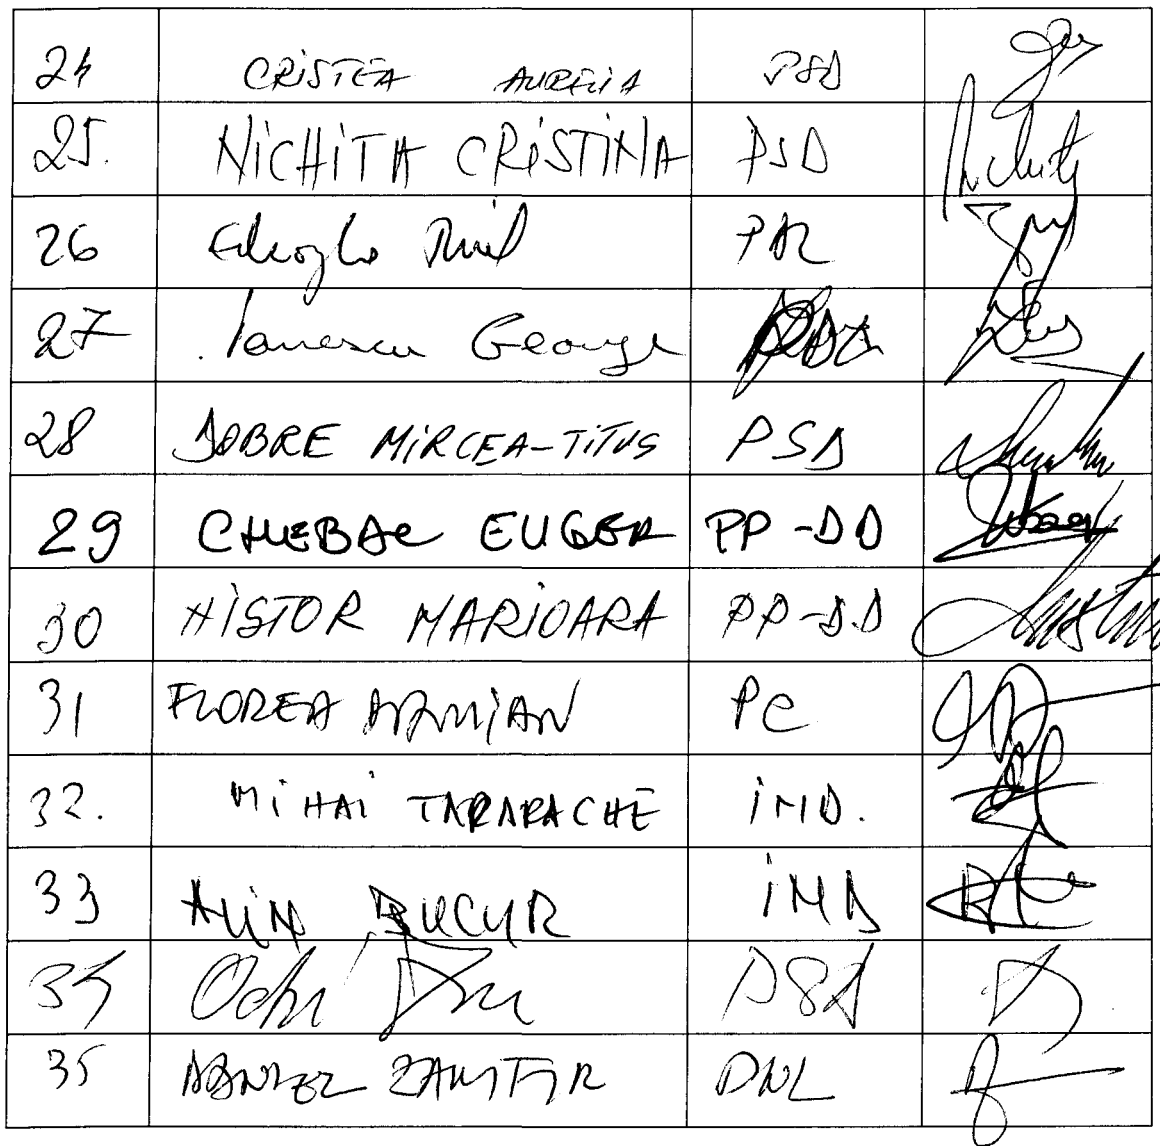 24 CRISTEA AURELIA PSD
25. NICHITA CRISTINA PSD
26
27 Ionescu George
28 DOBRE MIRCEA-TITUS PSD
29 CHEBAC EUGEN PP-DD
30 NISTOR MARIOARA PP-DD
31 FLOREA DAMIAN PC
32. MIHAI TARARACHE IMD.
33 ALIN BUCUR IMD
34 Ochi PSD
35 DANIEL ZAMFIR PNL